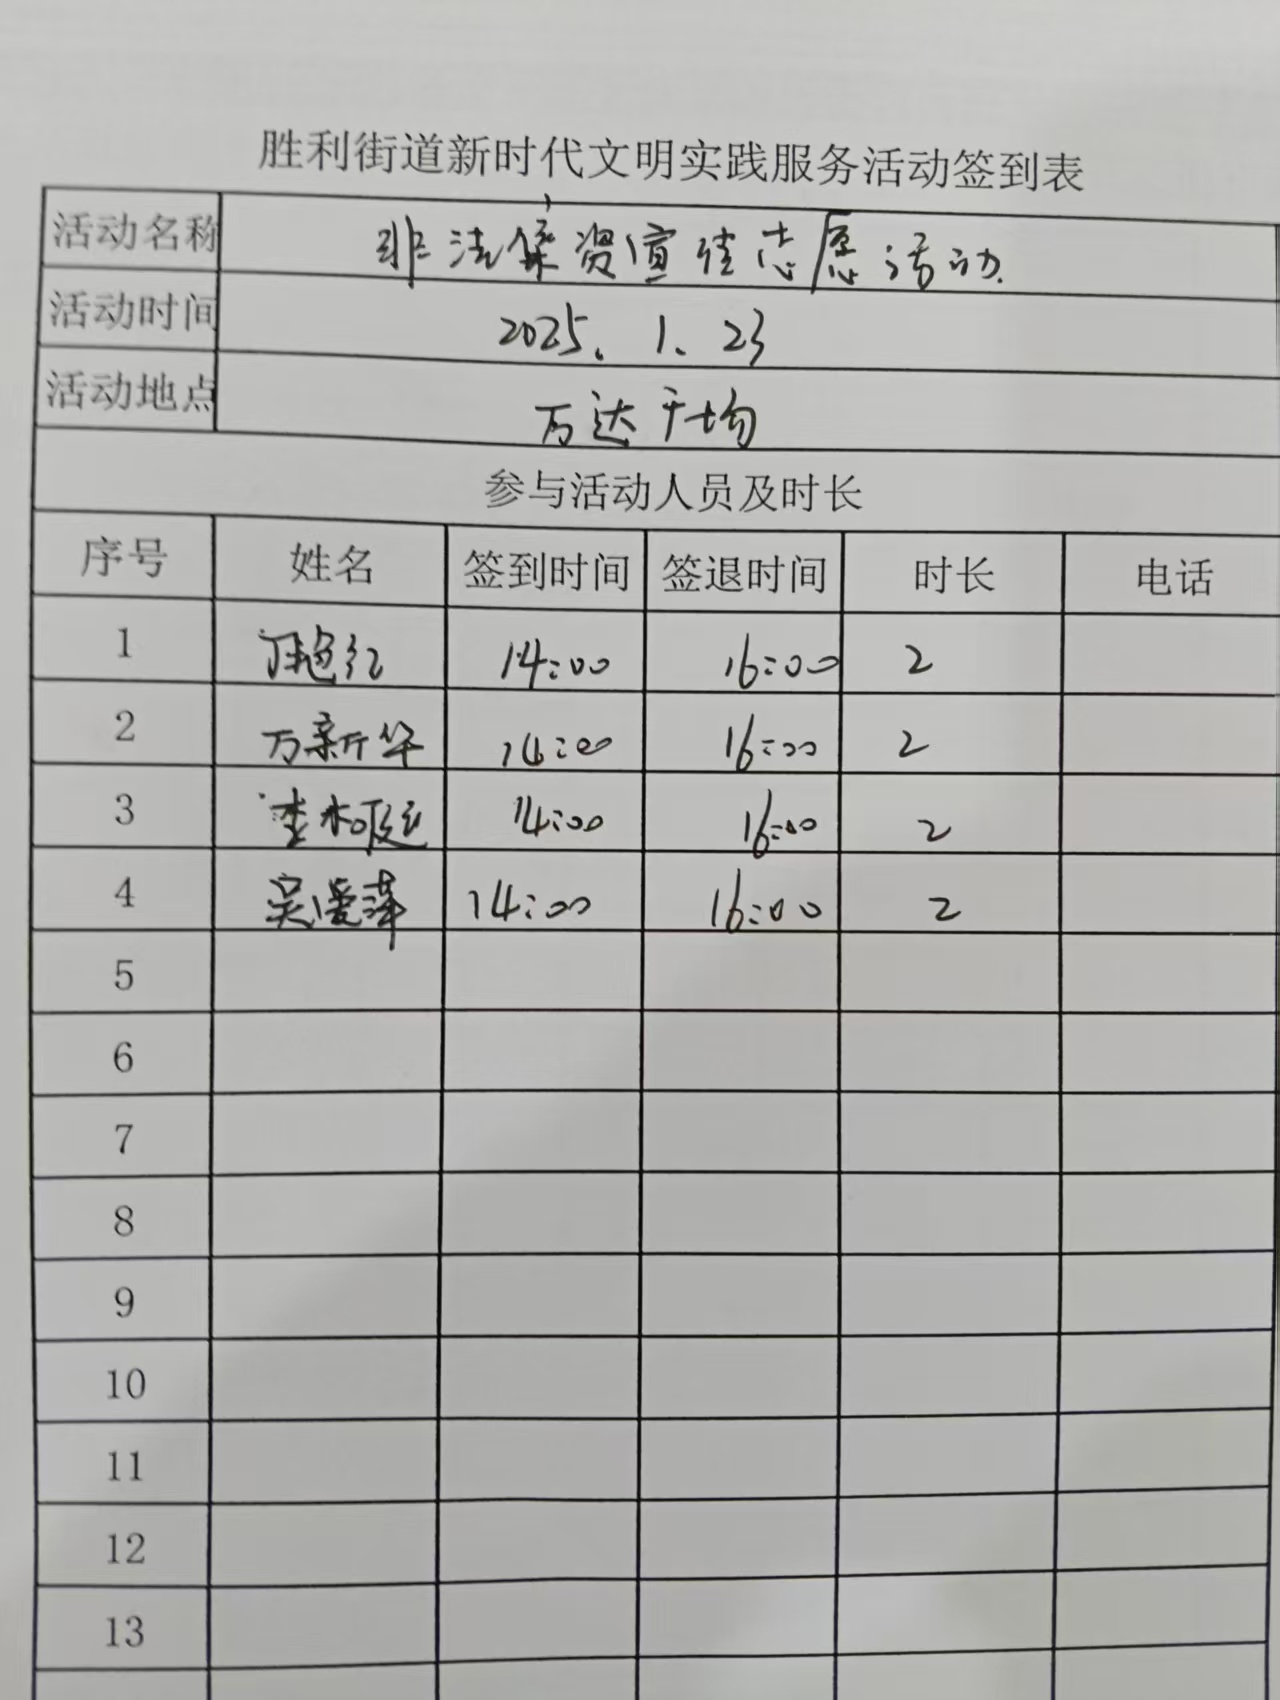 胜利街道新时代文明实践服务活动签到表
活动名称 非法集资宣传志愿活动
活动时间 2025.1.23
活动地点 万达广场
参与活动人员及时长
序号 姓名 签到时间 签退时间 时长 电话
1 14:00 16:00 2
2 万新华 14:00 16:00 2
3 14:00 16:00 2
4 吴爱萍 14:00 16:00 2
5
6
7
8
9
10
11
12
13